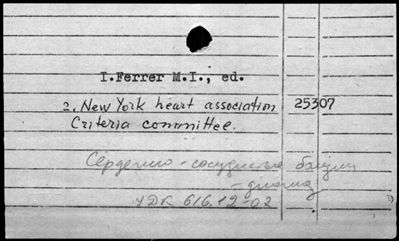 I.Ferrer M.I., ed.
2. New York heart association 25307
Criteria committee.
Сердечно-сосудистые
- диагноз
УДК 616.12-02